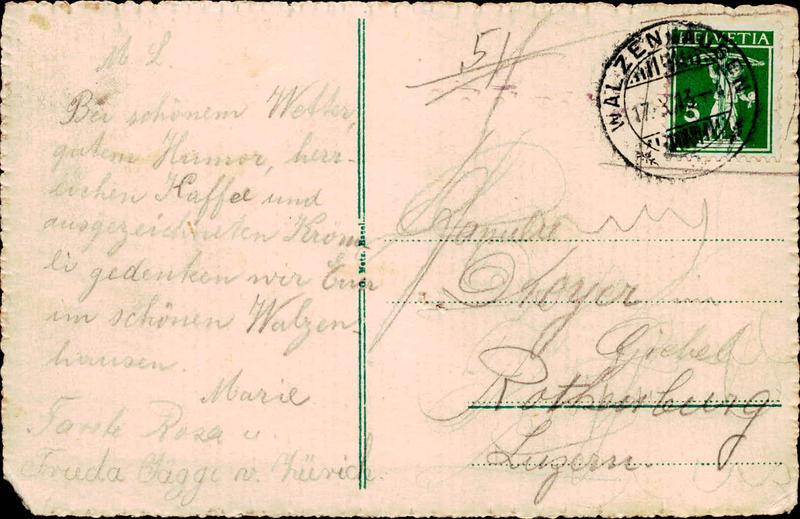 M L.
Bei schönem Wetter,
gutem Humor, herr-
lichen Kaffee und
ausgezeichneten Kröm
li gedenken wir Eur
im schönen Walzen-
hausen.
Marie
Tante Rosa u
Frieda Jäggi v. Zürich.
Metz, Basel.
51
HELVETIA
5
WALZENHAUSEN
17.
Familie
Koyer
Giebel
Rothenburg
Luzern.